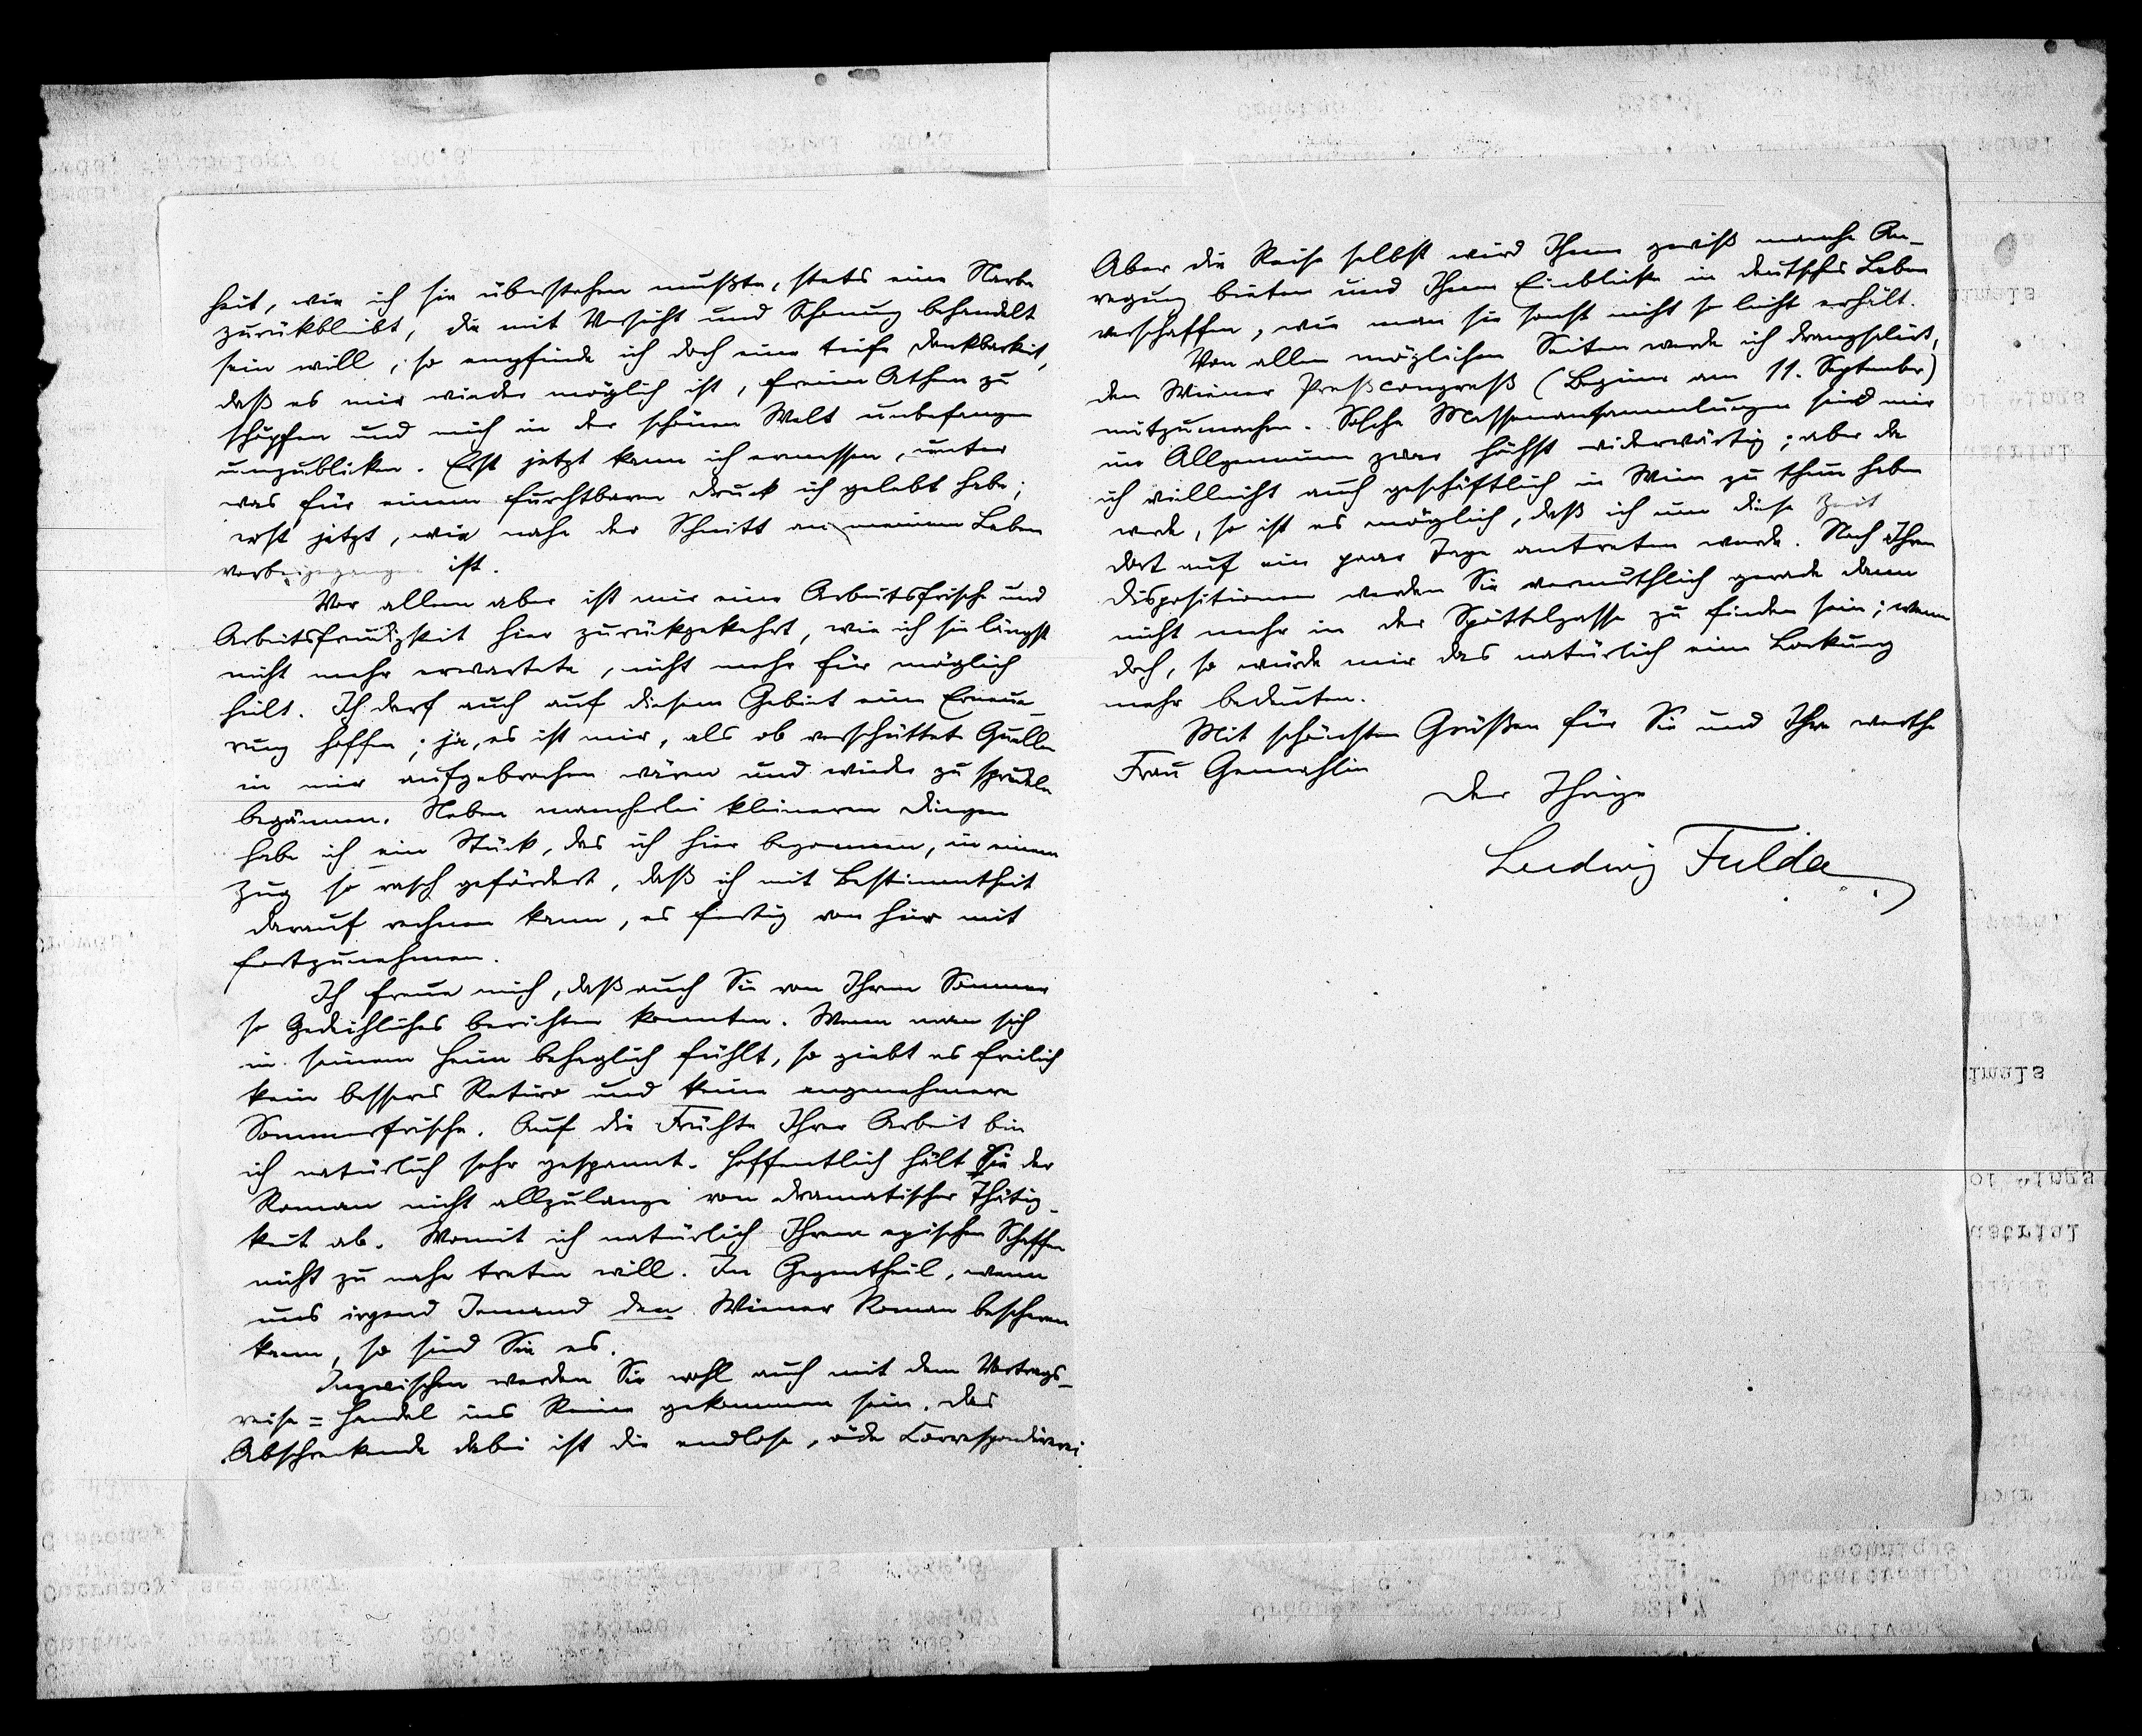 heit, wie ich sie überstehen mußte, stets eine Narbe
zurückbleibt, die mit Vorsicht und Schonung behandelt
sein will, so empfinde ich doch eine tiefe Dankbarkeit,
daß es mir wieder möglich ist, freien Athem zu
schöpfen und mich in der schönen Welt unbefangen
umzublicken. Erst jetzt kann ich ermessen, unter
was für einem furchtbaren Druck ich gelebt habe;
erst jetzt, wie nahe der Schnitt an meinem Leben
vorbeigegangen ist.
Vor allem aber ist mir eine Arbeitsfrische und
Arbeitsfreudigkeit hier zurückgekehrt, wie ich sie längst
nicht mehr erwartete, nicht mehr für möglich
hielt. Ich darf auch auf diesem Gebiet eine Erneue-
rung hoffen; ja, es ist mir, als ob verschüttete Quellen
in mir aufgebrochen wären und wieder zu sprudeln
begännen. Neben mancherlei kleineren Dingen
habe ich ein Stück, das ich hier begonnen, in einem
Zug so rasch gefördert, daß ich mit Bestimmtheit
darauf rechnen kann, es fertig von hier mit
fortzunehmen.
Ich freue mich, daß auch Sie von Ihrem Sommer
so Gedeihliches berichten konnten. Wenn man sich
in seinem Heim behaglich fühlt, so giebt es freilich
kein besseres Retiro und keine angenehmere
Sommerfrische. Auf die Früchte Ihrer Arbeit bin
ich natürlich sehr gespannt. Hoffentlich hält Sie der
Roman nicht allzulange von dramatischer Thätig-
keit ab. Womit ich natürlich Ihrem epischen Schaffen
nicht zu nahe treten will. Im Gegentheil, wenn
uns irgend Jemand den Wiener Roman bescheren
kann, so sind Sie es.
Inzwischen werden Sie wohl auch mit dem Vortrags-
reise=Handel ins Reine gekommen sein. Das
Abschreckende dabei ist die endlose, öde Correspondiererei.
Aber die Reise selbst wird Ihnen gewiß manche An-
regung bieten und Ihnen Einblicke in deutsches Leben
verschaffen, wie man sie sonst nicht so leicht erhält.
Von allen möglichen Seiten werde ich drangsalirt,
den Wiener Preßcongreß (Beginn am 11. September)
mitzumachen. Solche Massenansammlungen sind mir
im Allgemeinen zwar höchst widerwärtig; aber da
ich vielleicht auch geschäftlich in Wien zu thun haben
werde, so ist es möglich, daß ich um diese Zeit
dort auf ein paar Tage antreten werde. Nach Ihren
Dispositionen werden Sie vermuthlich gerade dann
nicht mehr in der Spöttelgasse zu finden sein; wenn
doch, so würde mir das natürlich eine Lockung
mehr bedeuten.
Mit schönsten Grüßen für Sie und Ihre werthe
Frau Gemahlin
der Ihrige
Ludwig Fulda